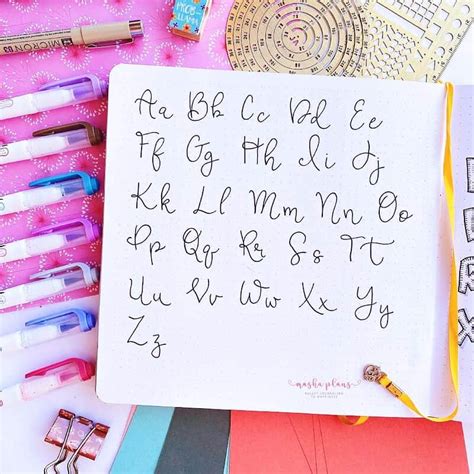 MICRON 05
Aa Bb Cc Dd Ee
Ff Gg Hh Ii Jj
Kk Ll Mm Nn Oo
Pp Qq Rr Ss Tt
Uu Vv Ww Xx Yy
Zz
masha plans
BULLET JOURNALING
TO HAPPINESS